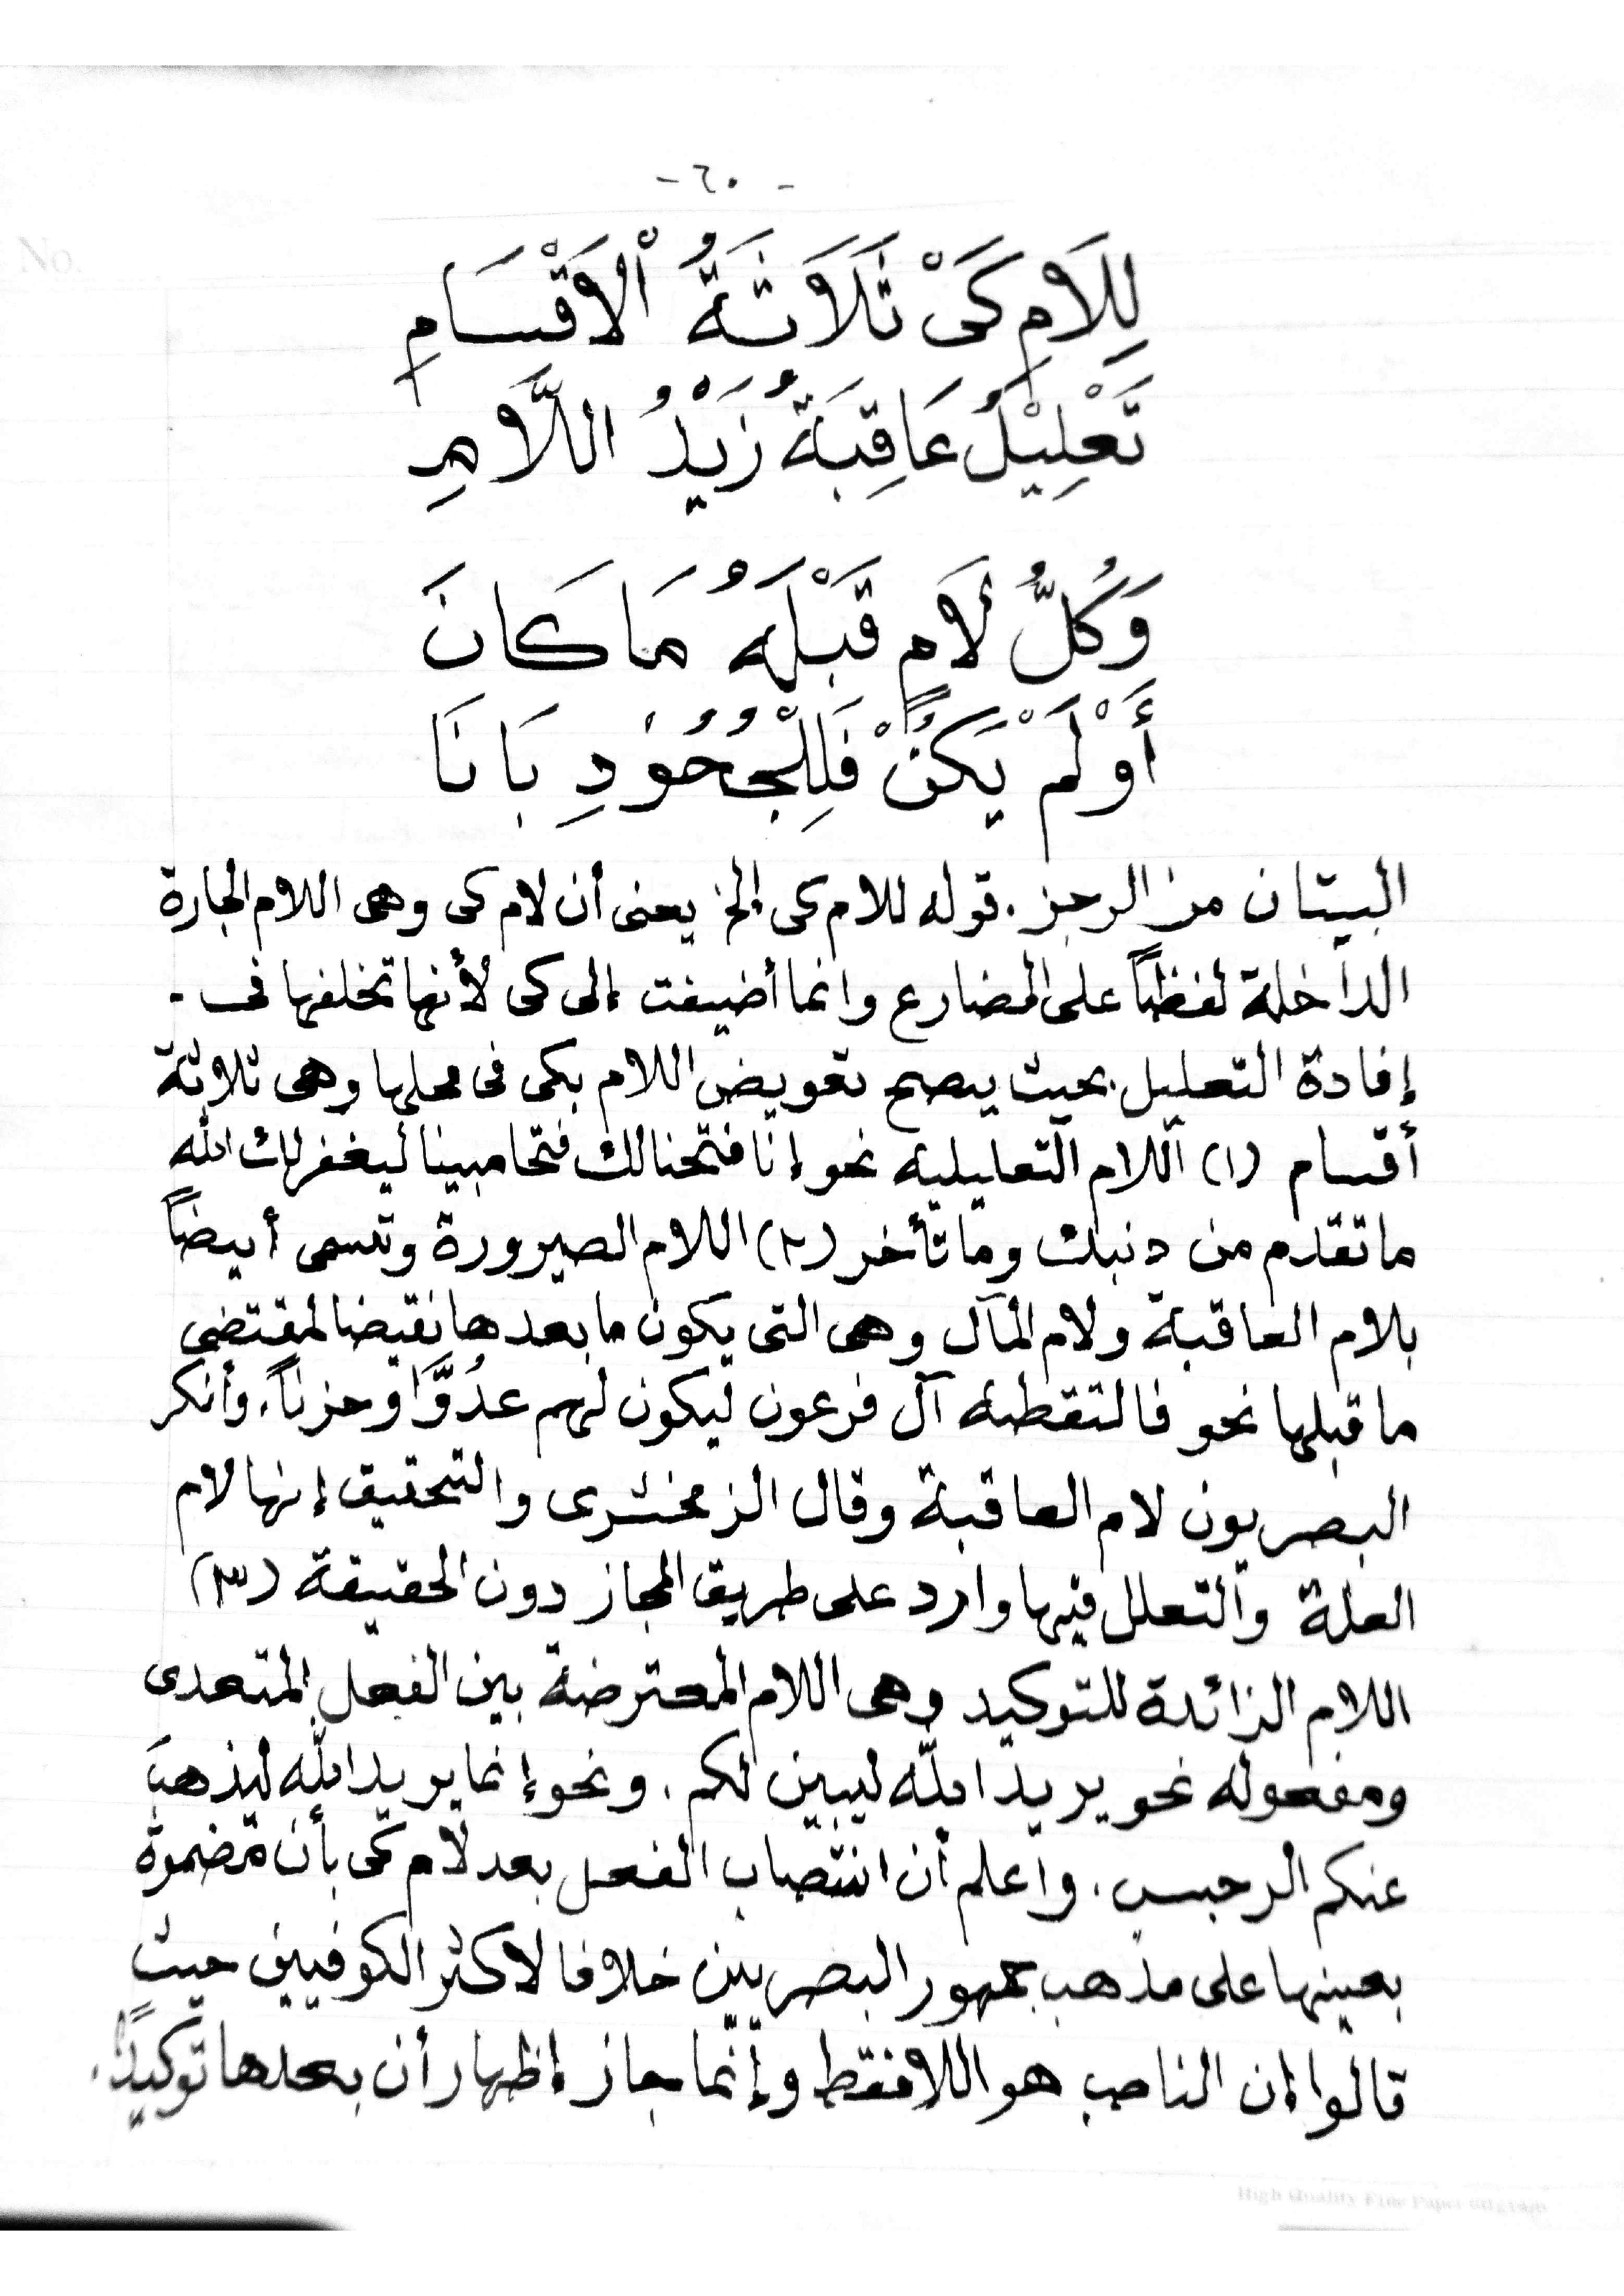 - ٦٠ -
لِلَامِ كَىْ ثَلَاثَةُ الْاَقْسَامِ
تَعْلِيْلُ عَاقِبَةُ زَيْدُ اللَّامِ
وَكُلُّ لَامٍ قَبْلَهُ مَا كَانَ
أَوْ لَمْ يَكُنْ فَلِلْجُحُوْدِ بَانَا
البيتان من الرجز . قوله للام كى إلخ يعنى أن لام كى وهى اللام الجارة
الداخلة لفظاً على المضارع وانما أضيفت إلى كى لأنها تخلفها فى -
إفادة التعليل بحيث يصح تعويض اللام بكى فى محلها وهى ثلاثة
أقسام (١) اللام التعليلية نحو إنا فتحنا لك فتحا مبينا ليغفر لك الله
ما تقدم من دنبك وما تأخر (٢) اللام الصيرورة وتسمى أيضاً
بلام العاقبة ولام المآل وهى التى يكون ما بعدها نقيضا لمقتضى
ما قبلها نحو فالتقطه آل فرعون ليكون لهم عدُوَّا وحزناً. وأنكر
البصريون لام العاقبة وقال الزمخشرى والتحقيق إنها لام
العلة والتعلل فيها وارد على طريق المجاز دون الحقيقة (٣)
اللام الزائدة للتوكيد وهى اللام المعترضة بين الفعل المتعدى
ومفعوله نحو يريد الله ليبين لكم . ونحو إنما يريد الله ليذهبَ
عنكم الرجس . واعلم أن انتصاب الفعل بعد لام كى بأن مضمرة
بعينها على مذهب جمهور البصريين خلافا لاكثر الكوفيين حيث
قالوا إن الناصب هو اللا فقط وإنّما جاز إظهار أن بعدها توكيدًا.
No.
High Quality Fine Paper